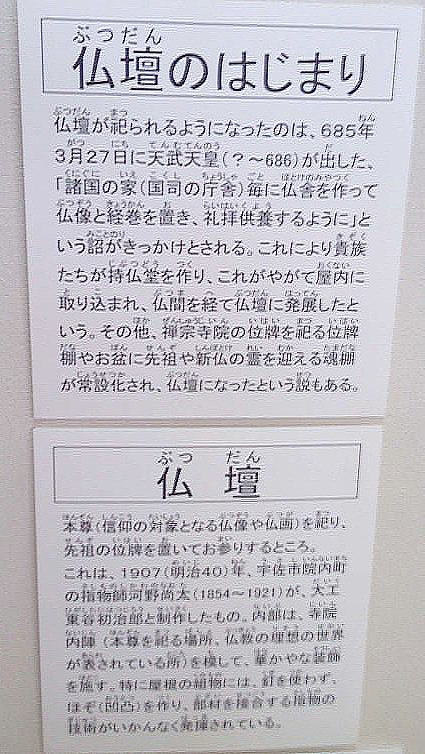 仏壇のはじまり
仏壇が祀られるようになったのは、685年
3月27日に天武天皇（？～686）が出した、
「諸国の家（国司の庁舎）毎に仏舎を作って
仏像と経巻を置き、礼拝供養するように」と
いう詔がきっかけとされる。これにより貴族
たちが持仏堂を作り、これがやがて屋内に
取り込まれ、仏間を経て仏壇に発展したと
いう。その他、禅宗寺院の位牌を祀る位牌
棚やお盆に先祖や新仏の霊を迎える魂棚
が常設化され、仏壇になったという説もある。
仏壇
本尊（信仰の対象となる仏像や仏画）を祀り、
先祖の位牌を置いてお参りするところ。
これは、1907（明治40）年、宇佐市院内町
の指物師河野尚太（1854～1921）が、大工
東谷初治郎と制作したもの。内部は、寺院
内陣（本尊を祀る場所、仏教の理想の世界
が表されている所）を模して、華かやな装飾
を施す。特に屋根の組物には、釘を使わず、
ほぞ（凹凸）を作り、部材を接合する指物の
技術がいかんなく発揮されている。